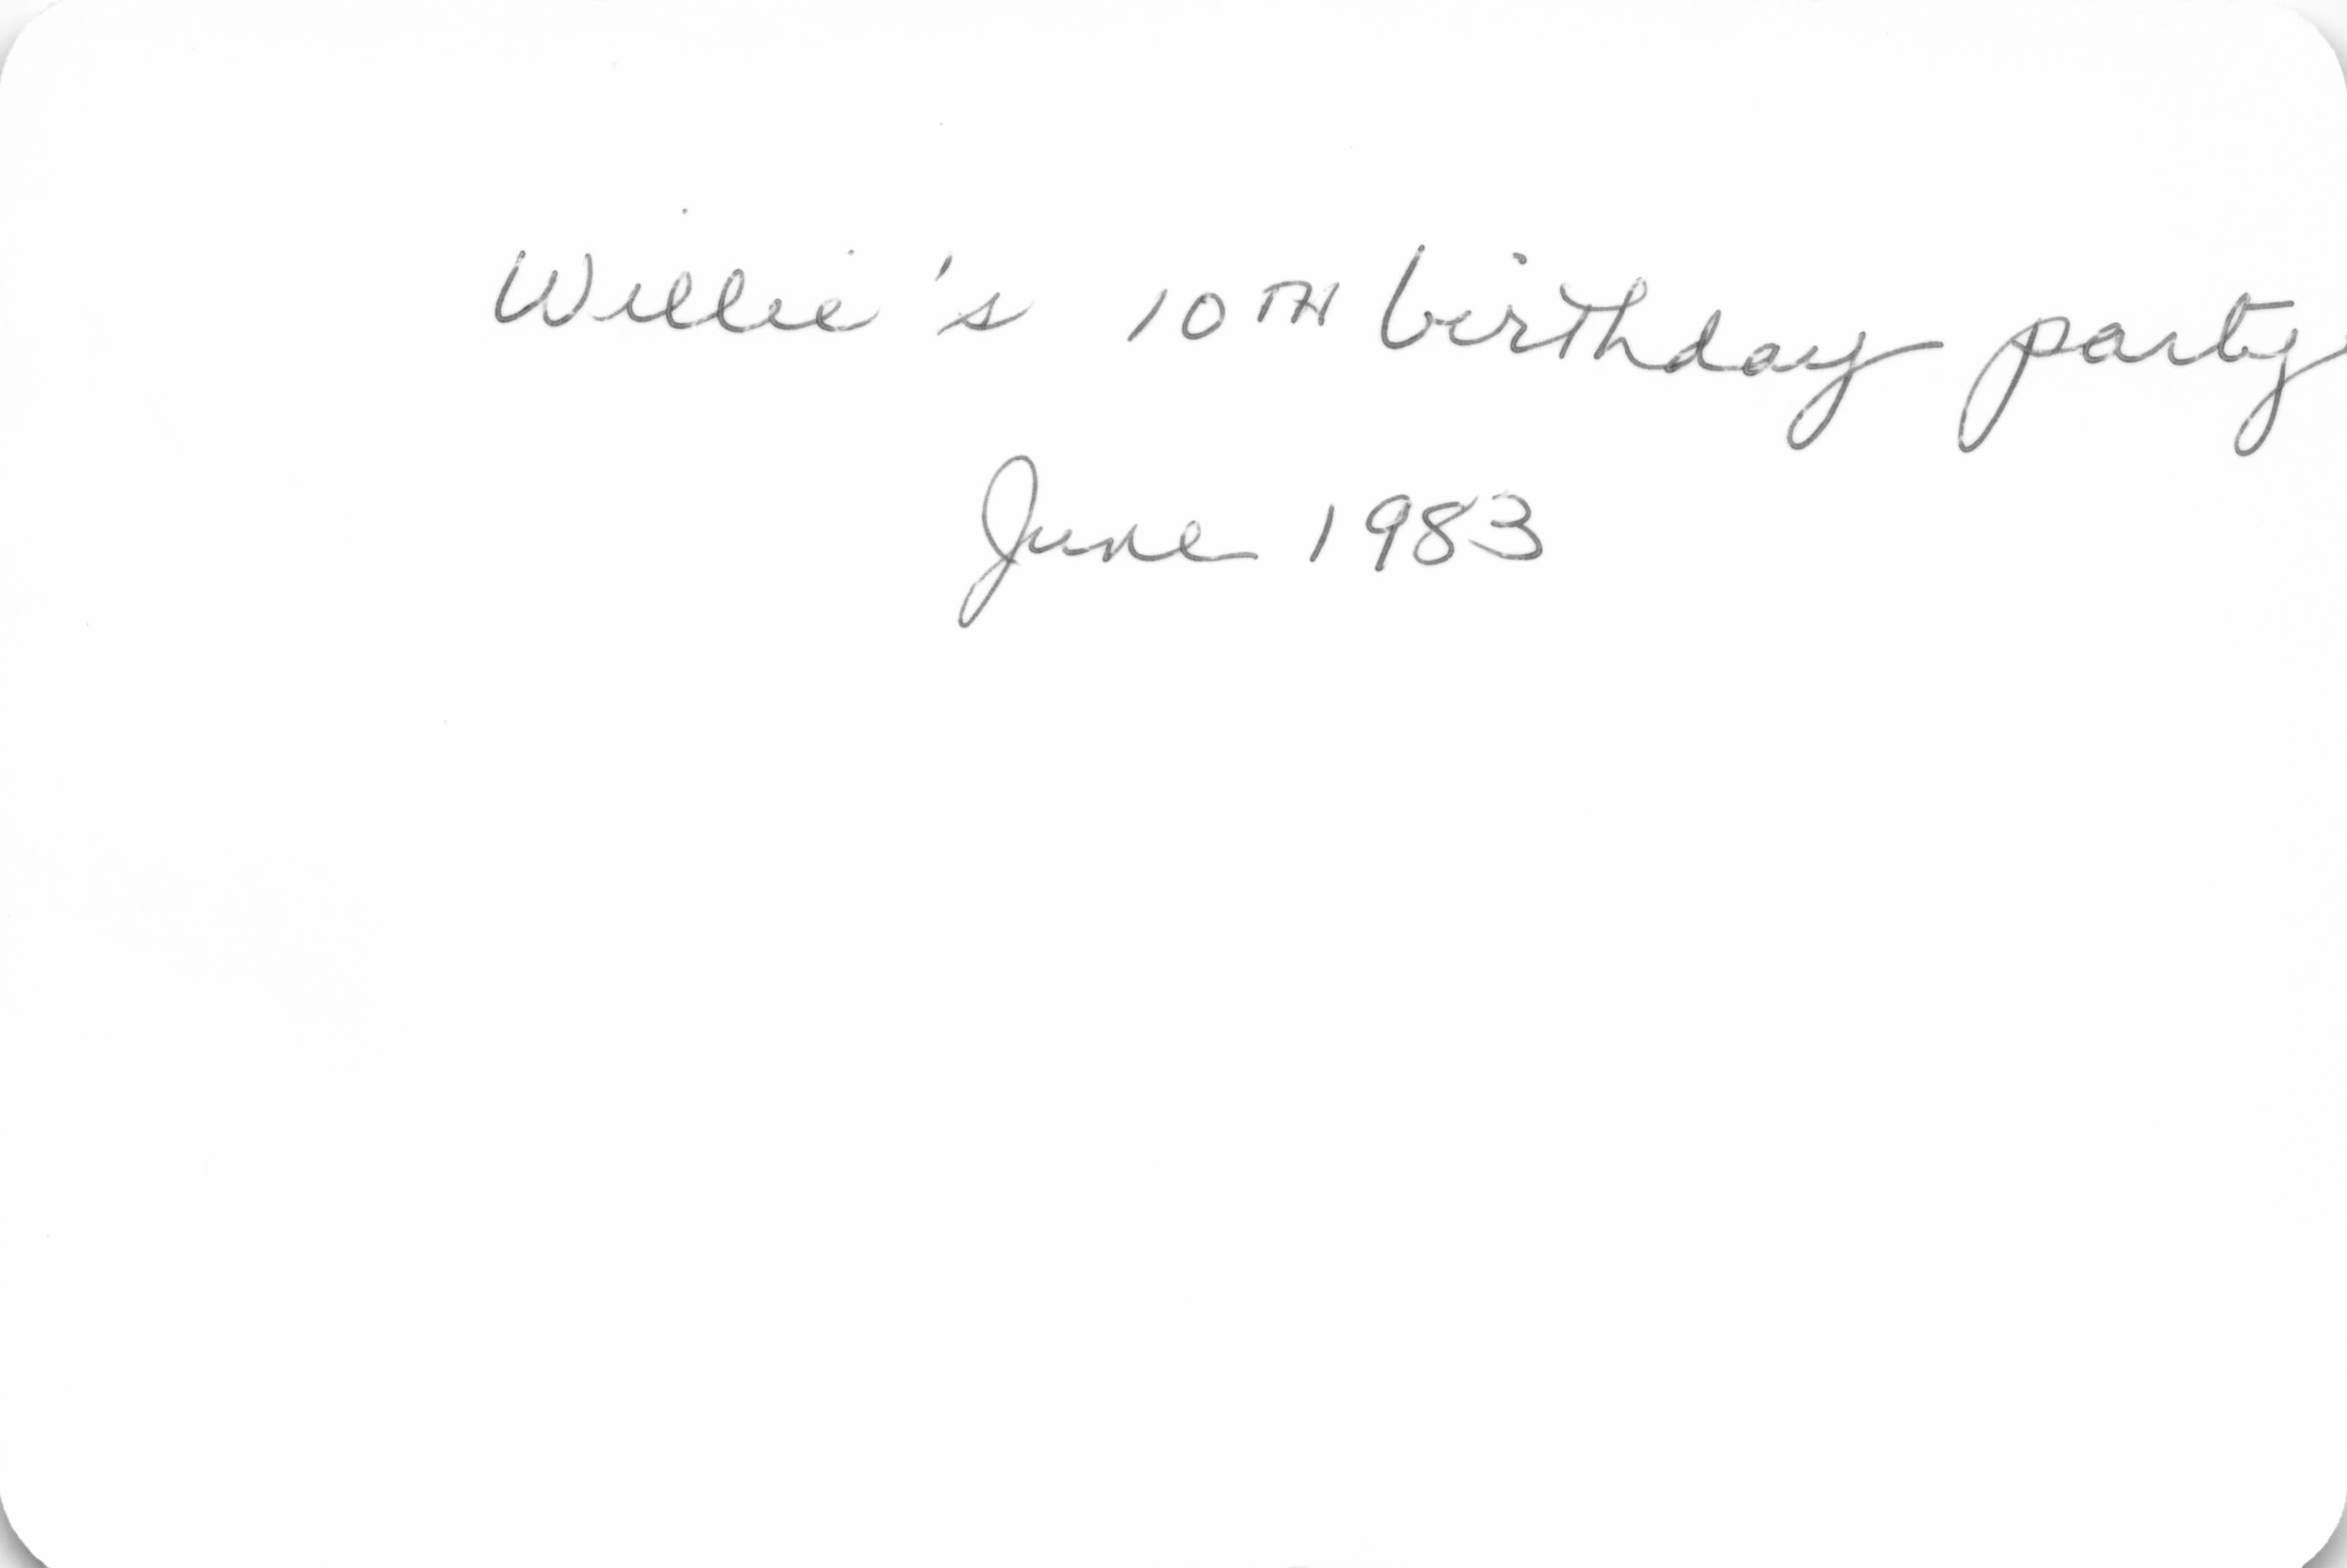 Willie's 10TH birthday party
June 1983